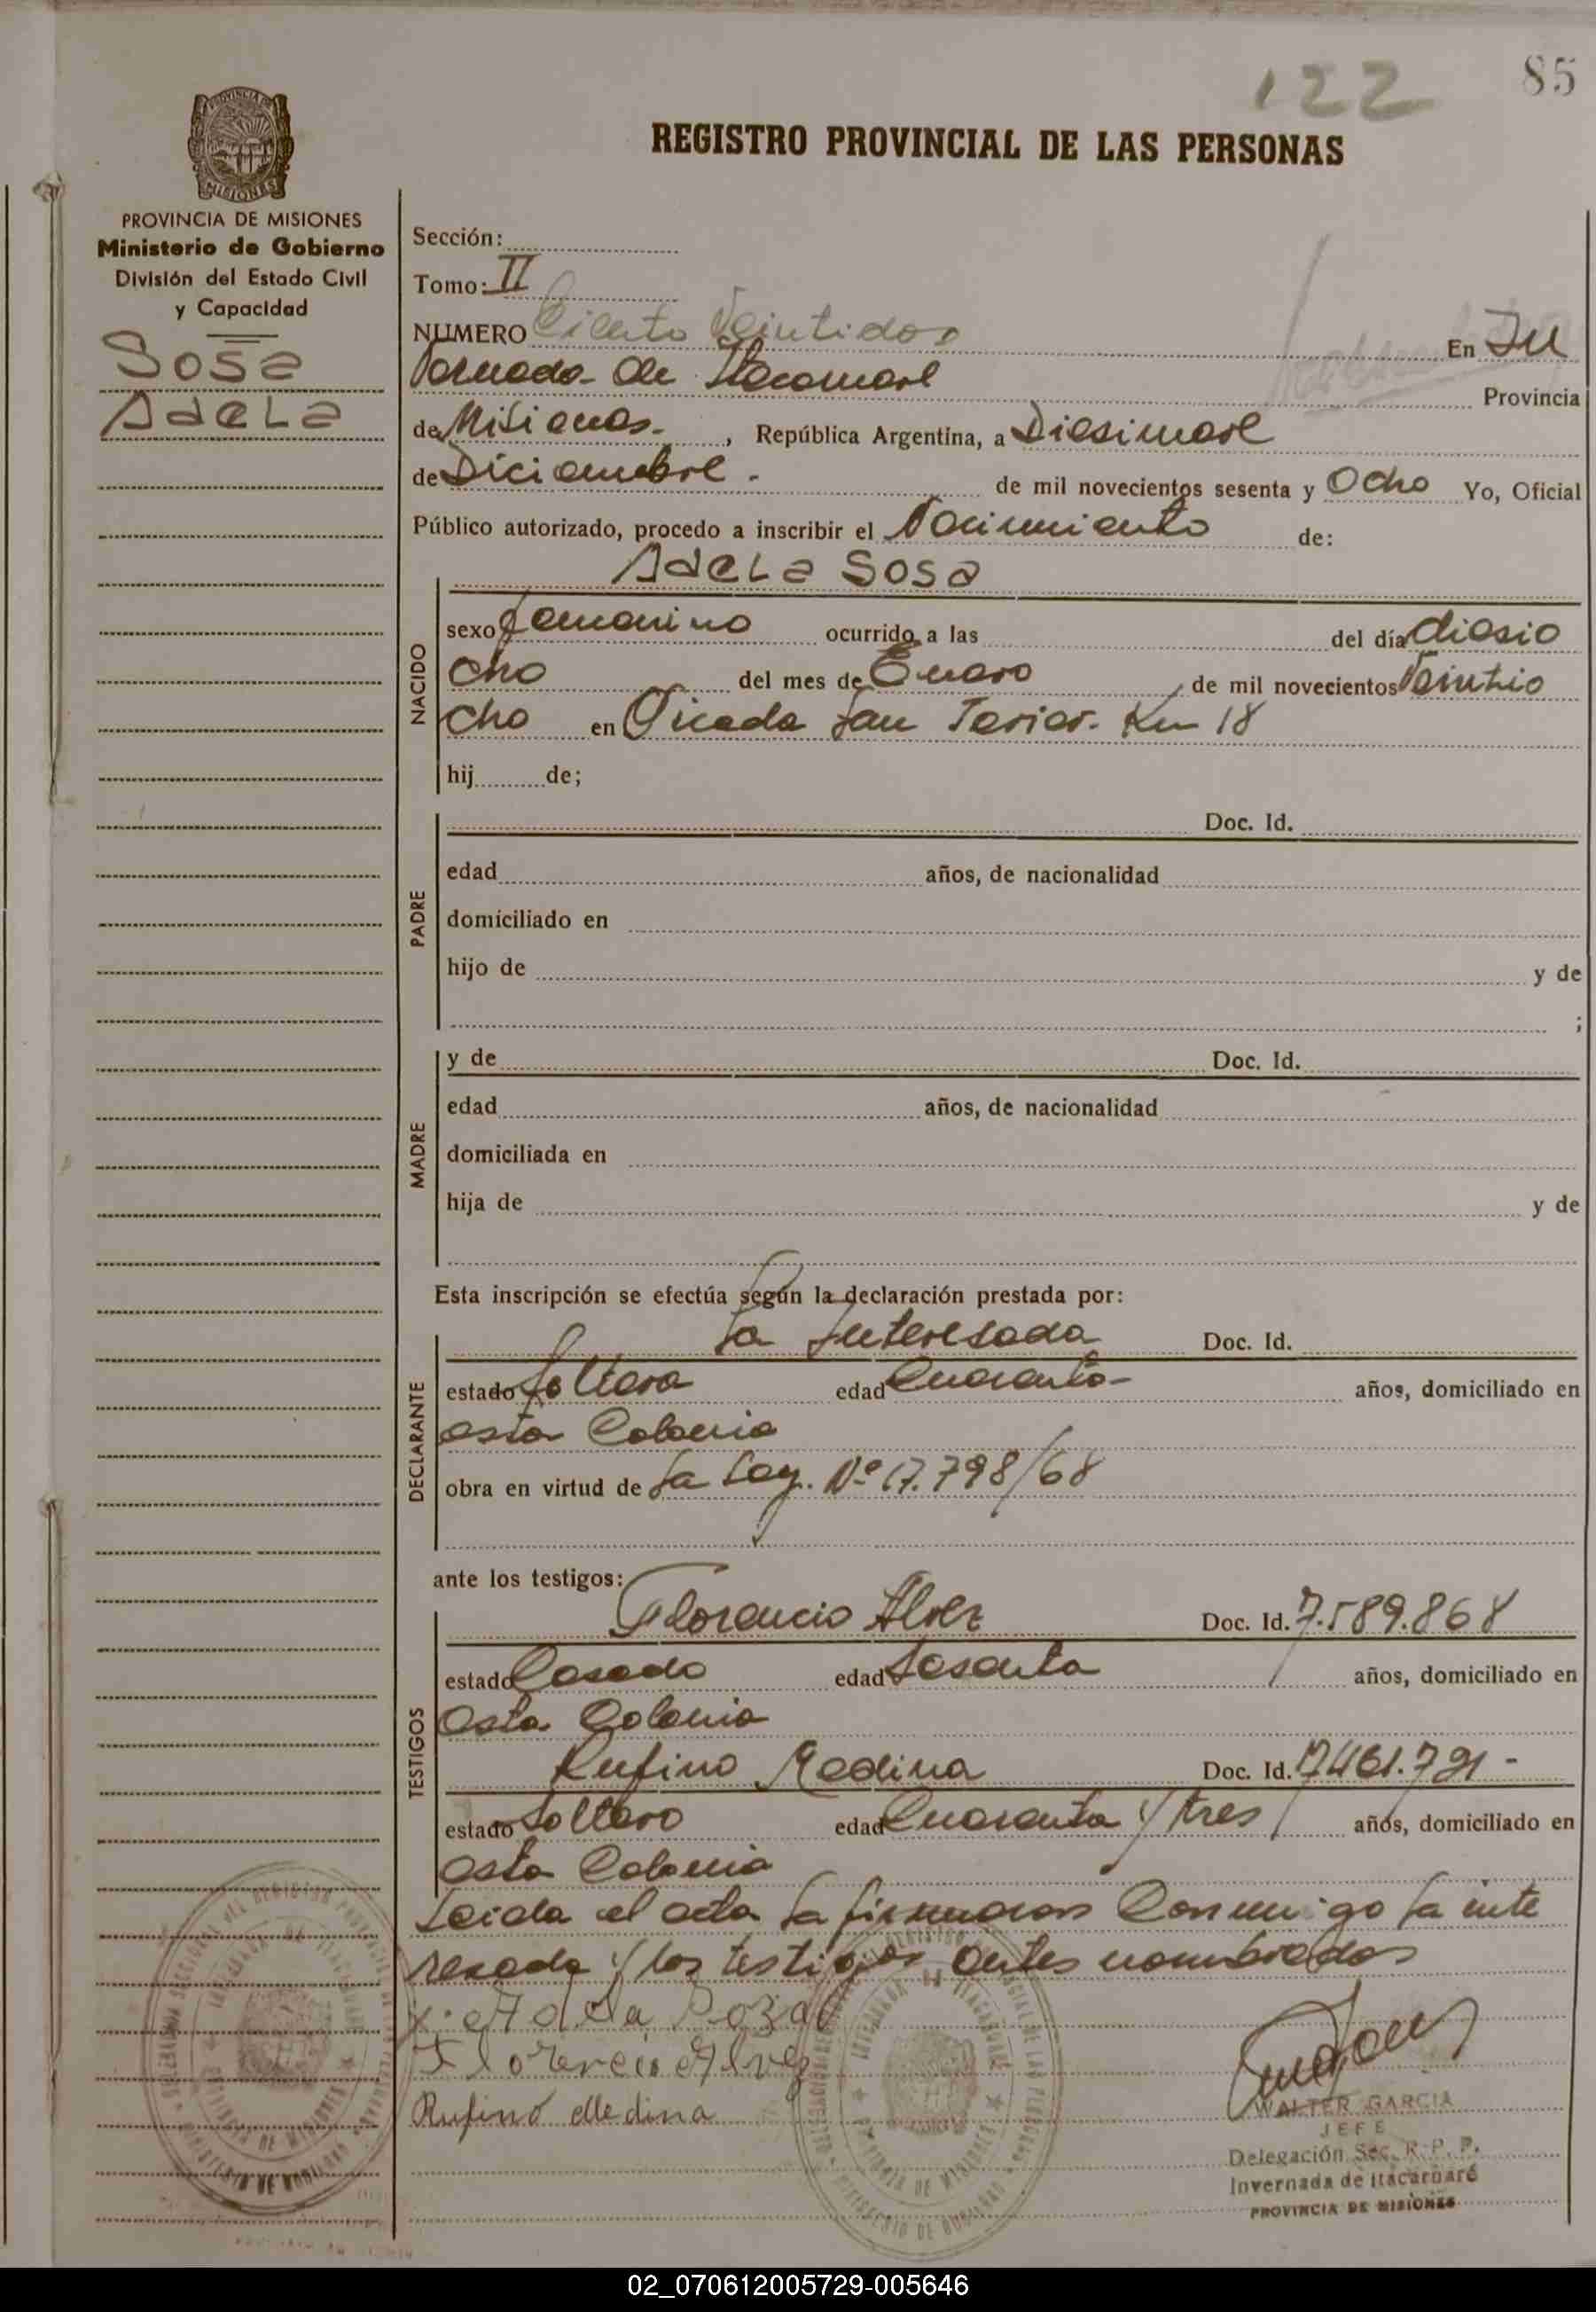 122
85
REGISTRO PROVINCIAL DE LAS PERSONAS
PROVINCIA DE MISIONES
Ministerio de Gobierno
División del Estado Civil
y Capacidad
Sosa
Adela
Sección:
Tomo: II
NUMERO Ciento Veintidos En In
vernada de Itacaruare Provincia
de Misiones, República Argentina, a Diesinueve
de Diciembre de mil novecientos sesenta y Ocho Yo, Oficial
Público autorizado, procedo a inscribir el Nacimiento de:
Adela Sosa
NACIDO
sexo femenino ocurrido a las del día diesio
cho del mes de Enero de mil novecientos Veintio
cho en Picada San Javier. Km 18
hij de;
PADRE
Doc. Id.
edad años, de nacionalidad
domiciliado en
hijo de y de
;
MADRE
y de Doc. Id.
edad años, de nacionalidad
domiciliada en
hija de y de
Esta inscripción se efectúa según la declaración prestada por:
DECLARANTE
La Interesada Doc. Id.
estado Soltera edad Cuarenta años, domiciliado en
esta Colonia
obra en virtud de La Ley. Nº 17.798/68
ante los testigos:
TESTIGOS
Florencio Alvez Doc. Id. 7.589.868
estado Casado edad Sesenta años, domiciliado en
esta Colonia
Rufino Medina Doc. Id. 7461.791-
estado Soltero edad Cuarenta y tres años, domiciliado en
esta Colonia
Leida el acta la firmaron Conmigo la inte
resada y los testigos antes nombrados
x. Adela Soza
Florencio Alvez
Rufino Medina
WALTER GARCIA
JEFE
Delegación Sec. R. P. P.
Invernada de Itacaruaré
PROVINCIA DE MISIONES
02_070612005729-005646